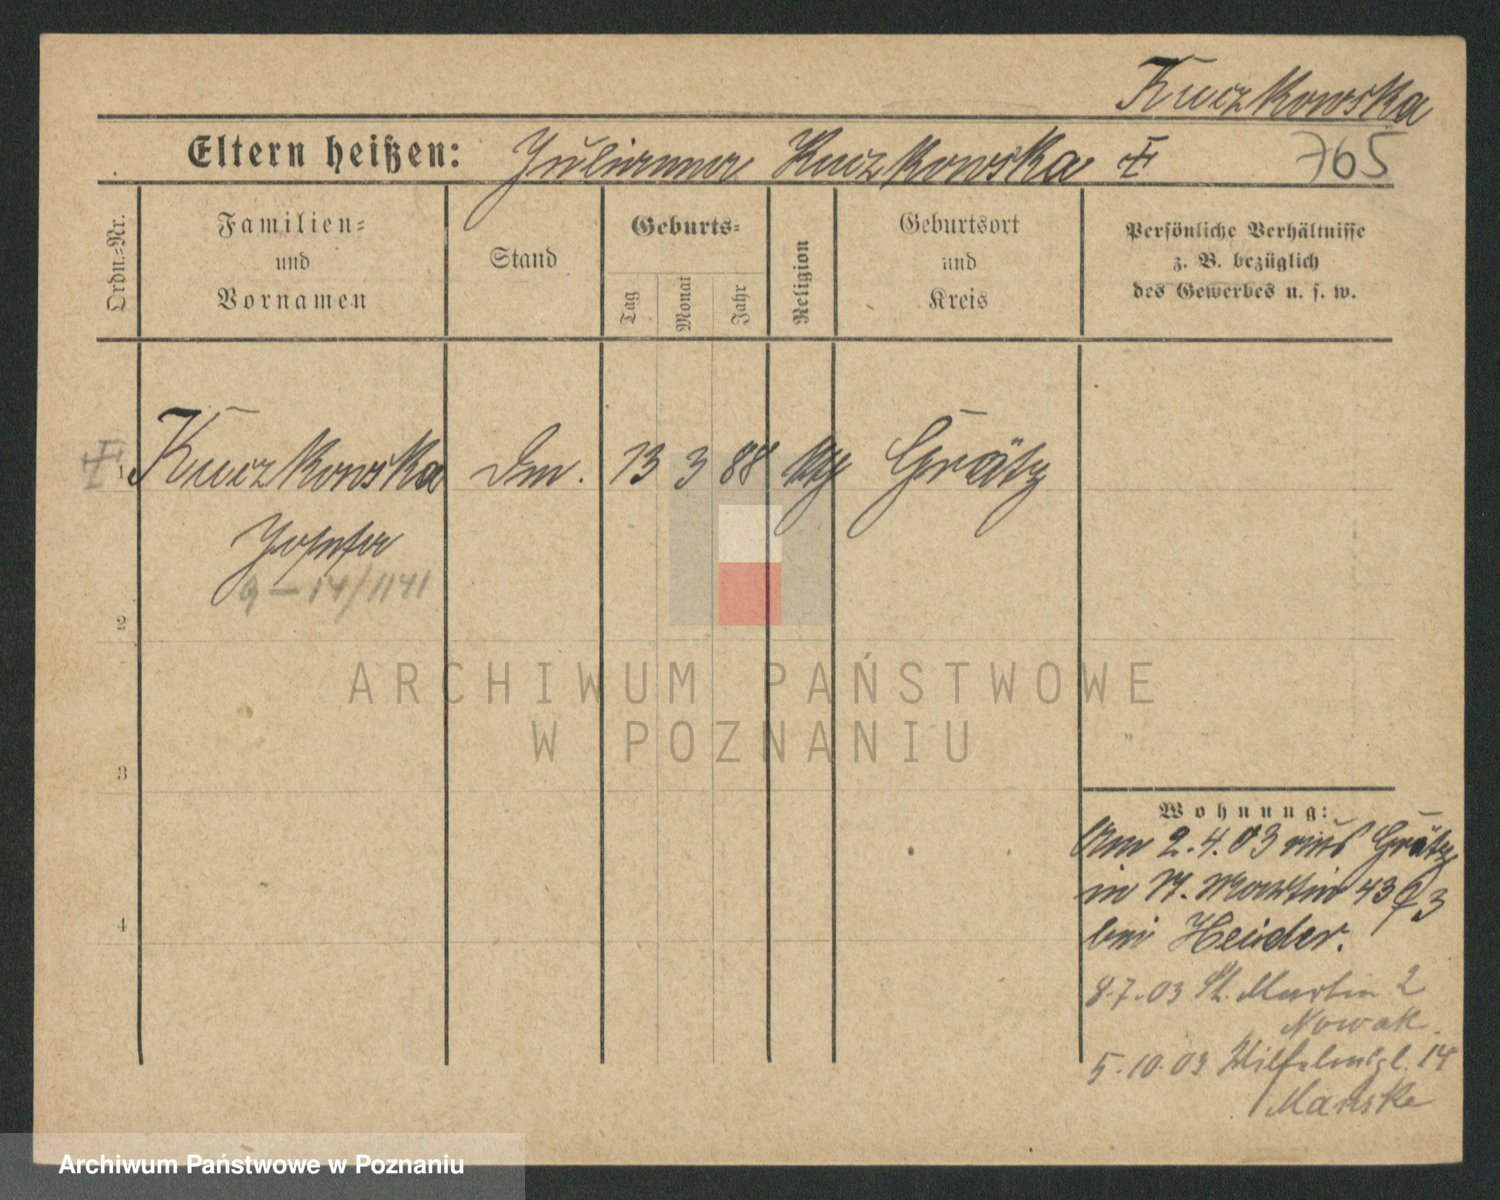 Kuczkowska
Eltern heißen: Julianna Kuczkowska
765
Ordn.-Nr.
Familien-
und
Vornamen
Stand
Geburts-
Tag
Monat
Jahr
Religion
Geburtsort
und
Kreis
Persönliche Verhältnisse
z. B. bezüglich
des Gewerbes u. s. w.
1 Kuczkowska 13 3 88 Grätz
Josefa
9 – 14/1141
2
3
4
Wohnung:
Am 2.4.03 aus Grätz
in St. Martin 43
bei Heider.
8.7.03 St. Martin 2
Nowak.
5.10.03 Wilhelmspl. 14
Manske
ARCHIWUM PAŃSTWOWE
W POZNANIU
Archiwum Państwowe w Poznaniu